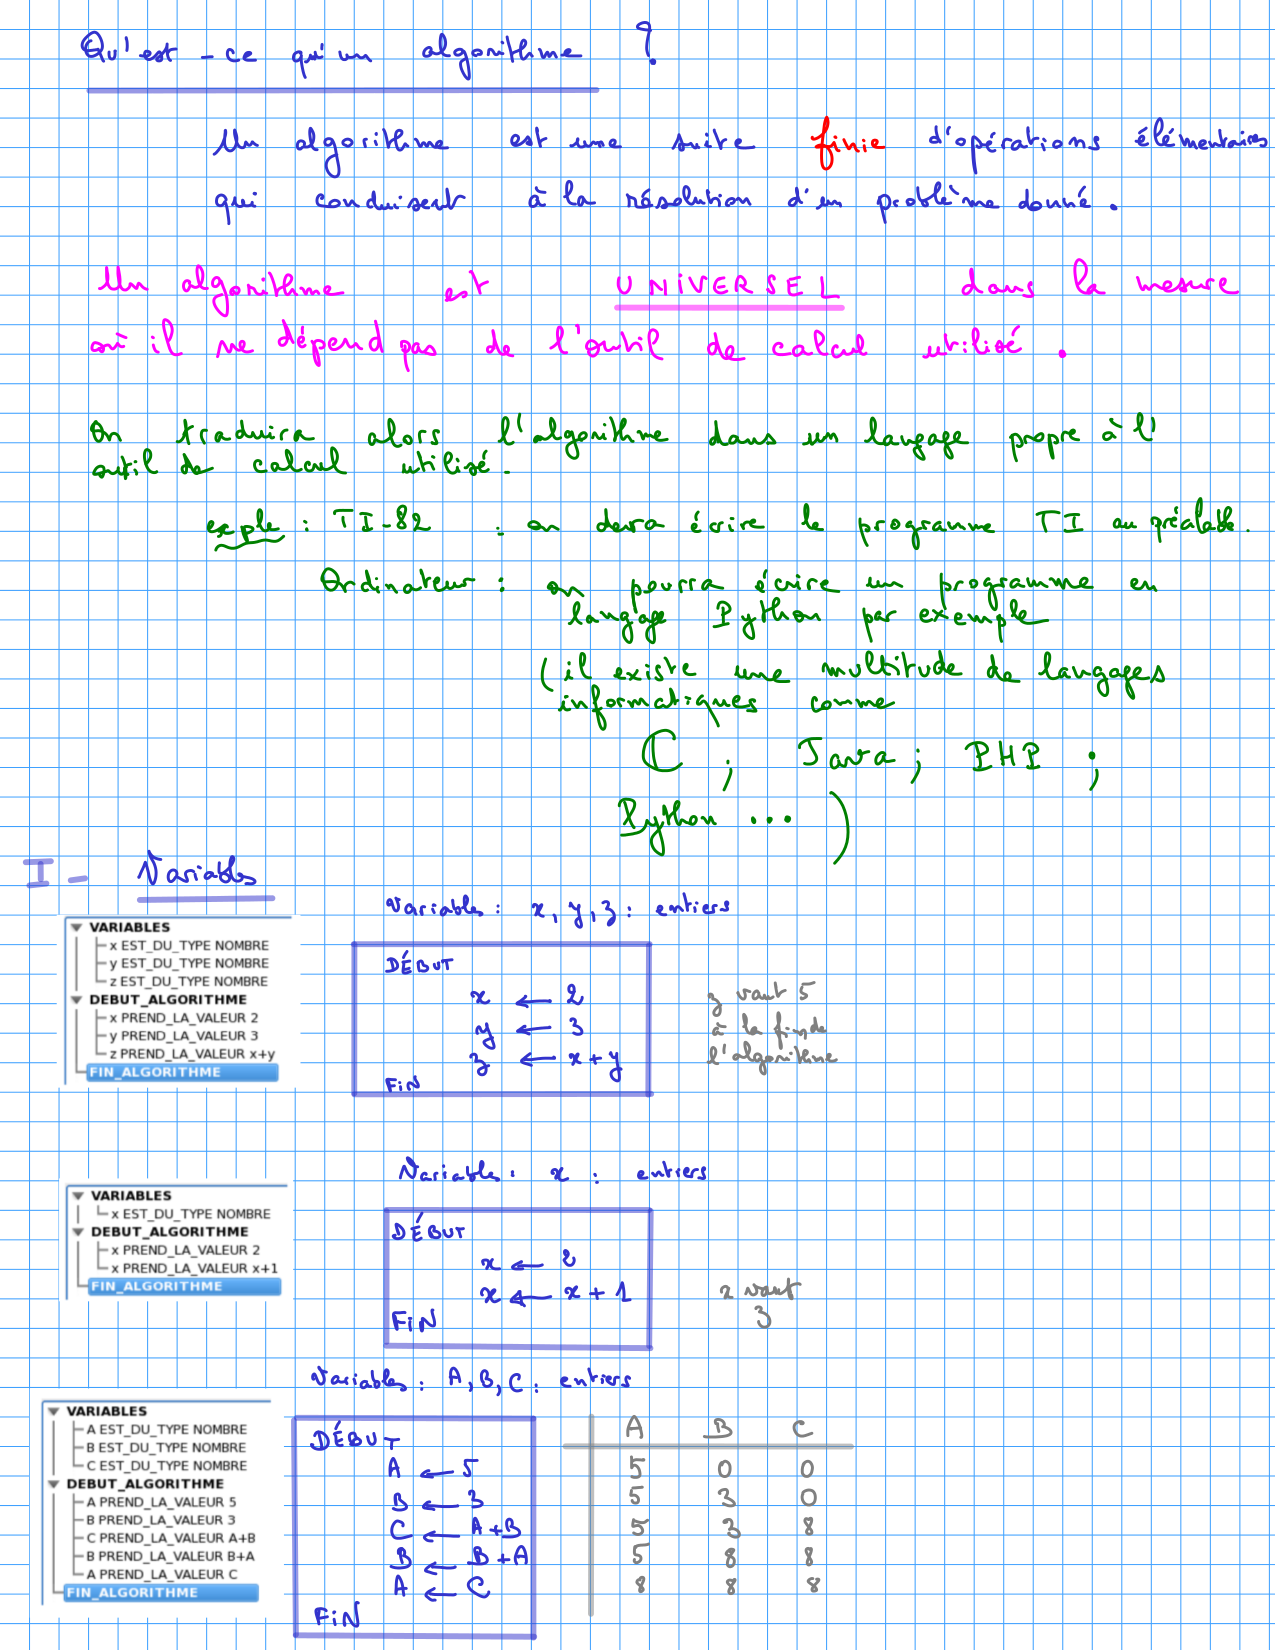 Qu'est-ce qu'un algorithme ?
Un algorithme est une suite finie d'opérations élémentaires
qui conduisent à la résolution d'un problème donné.
Un algorithme est UNIVERSEL dans la mesure
où il ne dépend pas de l'outil de calcul utilisé.
On traduira alors l'algorithme dans un langage propre à l'
outil de calcul utilisé.
exple : TI-82 : on devra écrire le programme TI au préalable.
Ordinateur : on pourra écrire un programme en
langage Python par exemple
(il existe une multitude de langages
informatiques comme
C ; Java ; PHP ;
Python ... )
I - Variables
VARIABLES
x EST_DU_TYPE NOMBRE
y EST_DU_TYPE NOMBRE
z EST_DU_TYPE NOMBRE
DEBUT_ALGORITHME
x PREND_LA_VALEUR 2
y PREND_LA_VALEUR 3
z PREND_LA_VALEUR x+y
FIN_ALGORITHME
Variables : x, y, z : entiers
DÉBUT
x ← 2
y ← 3
z ← x + y
FIN
z vaut 5
à la fin de
l'algorithme
VARIABLES
x EST_DU_TYPE NOMBRE
DEBUT_ALGORITHME
x PREND_LA_VALEUR 2
x PREND_LA_VALEUR x+1
FIN_ALGORITHME
Variables : x : entiers
DÉBUT
x ← 2
x ← x + 1
FIN
x vaut
3
VARIABLES
A EST_DU_TYPE NOMBRE
B EST_DU_TYPE NOMBRE
C EST_DU_TYPE NOMBRE
DEBUT_ALGORITHME
A PREND_LA_VALEUR 5
B PREND_LA_VALEUR 3
C PREND_LA_VALEUR A+B
B PREND_LA_VALEUR B+A
A PREND_LA_VALEUR C
FIN_ALGORITHME
Variables : A, B, C : entiers
DÉBUT
A ← 5
B ← 3
C ← A+B
B ← B+A
A ← C
FIN
A B C
5 0 0
5 3 0
5 3 8
5 8 8
8 8 8